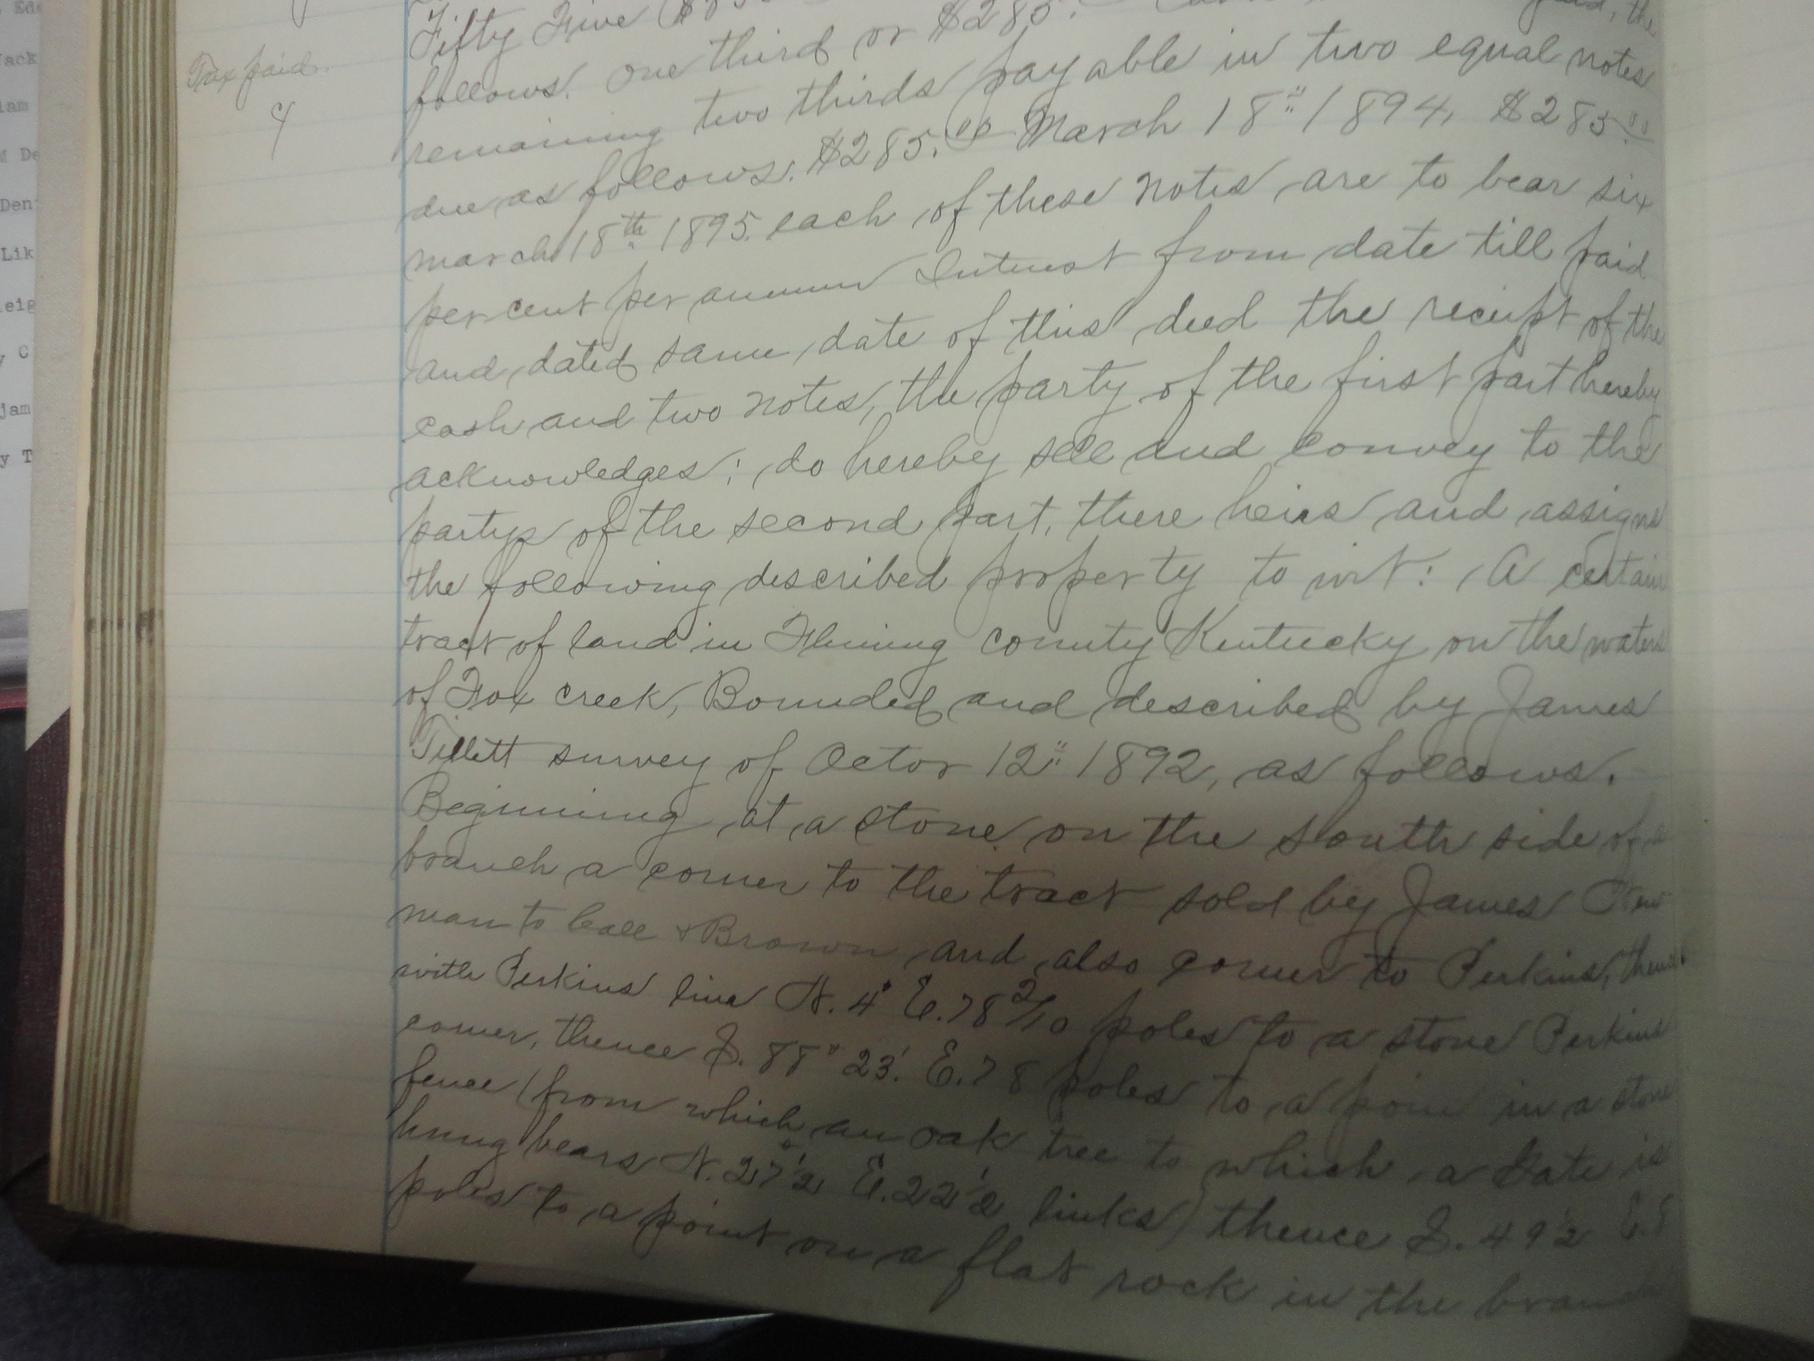 Tax paid.
Fifty Five
follows. One third or $285. the
remaining two thirds payable in two equal notes
due as follows. $285.00 March 18" 1894, $285.00
march 18th 1895. each of these notes are to bear six
per cent per annum Interest from date till paid
and dated same date of this deed the receipt of the
cash and two notes, the party of the first part hereby
acknowledges; do hereby sell and convey to the
partys of the second part, there heirs and assigns
the following described property to wit: A certain
tract of land in Fleming county Kentucky on the waters
of Fox creek, Bounded and described by James
Tillett survey of Octor 12" 1892, as follows.
Beginning at a stone on the South side of a
branch a corner to the tract sold by James
man to Call & Brown and also corner to Perkins, thence
with Perkins line N. 4° E. 78 2/10 poles to a stone Perkins
corner, thence S. 88° 23' E. 78 poles to a poin in a stone
fence (from which an oak tree to which a Gate is
hung bears N. 27 1/2° E. 22 1/2 links) thence S. 49 1/2 E.
poles to a point on a flat rock in the branch